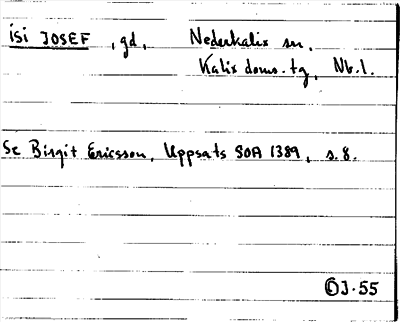 isi JOSEF, gd, Nederkalix sn.
Kalix doms. tg, Nb.l.
Se Birgit Ericsson, Uppsats SOA 1389, s. 8.
J-55